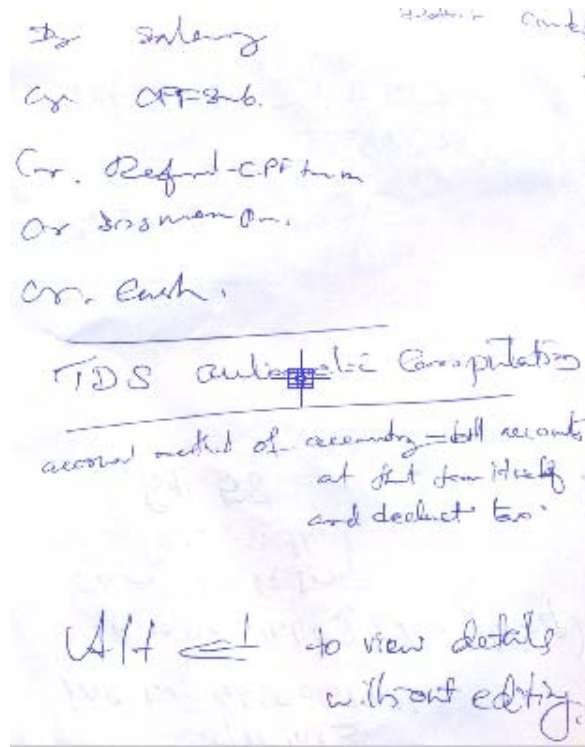 Dr Salary
Cr. CPF Sub.
Cr. Refund-CPF
Cr
Cr. Cash.
TDS automatic Computation
accrual method of accounting – bill records
at first itself
and deduct tax.
Alt to view details
without editing.